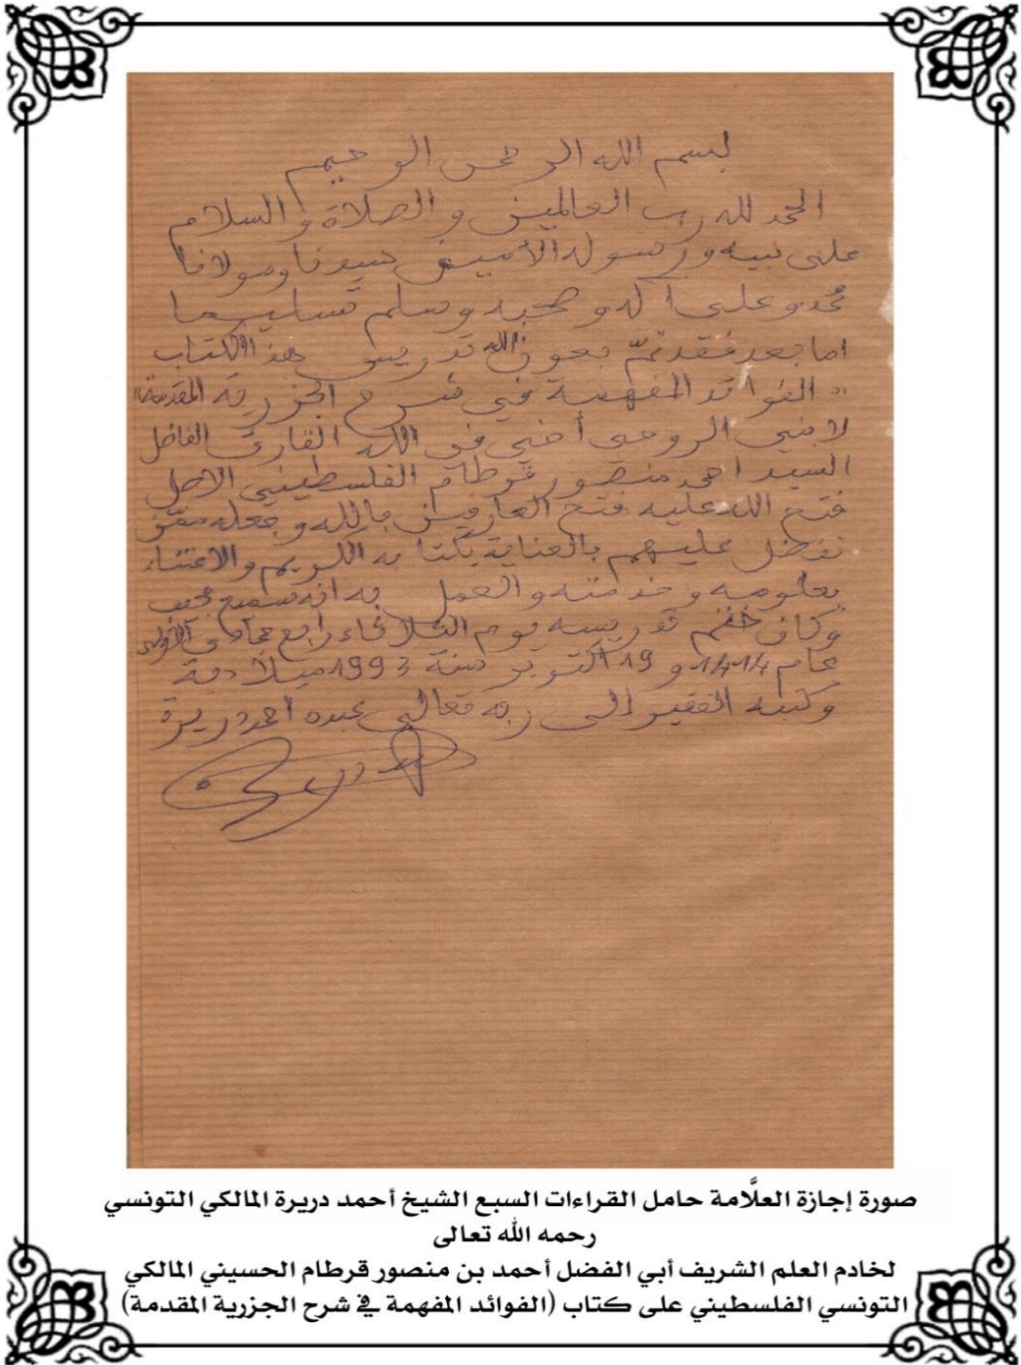 بسم الله الرحمن الرحيم
الحمد لله رب العالمين والصلاة والسلام
على نبيه ورسوله الأمين سيدنا ومولانا
محمد وعلى آله وصحبه وسلم تسليما
اما بعد فقد تمّ بعون الله تدريس هذا الكتاب
"الفوائد المفهمة في شرح الجزرية المقدمة"
لابني الروحي أخي في الله القارئ الفاضل
السيد احمد منصور قرطام الفلسطيني الاصل
فتح الله عليه فتح العارفين بالله وجعله ممّن
تفضل عليهم بالعناية بكتابه الكريم والاعتناء
بعلومه وخدمته والعمل به انه سميع مجيب
وكان ختم تدريسه يوم الثلاثاء رابع جمادى الأولى
عام 1414 و 19 اكتوبر سنة 1993 ميلادية
وكتبه الفقير إلى ربه تعالى عبده احمد دريرة
صورة إجازة العلَّامة حامل القراءات السبع الشيخ أحمد دريرة المالكي التونسي
رحمه الله تعالى
لخادم العلم الشريف أبي الفضل أحمد بن منصور قرطام الحسيني المالكي
التونسي الفلسطيني على كتاب (الفوائد المفهمة في شرح الجزرية المقدمة)